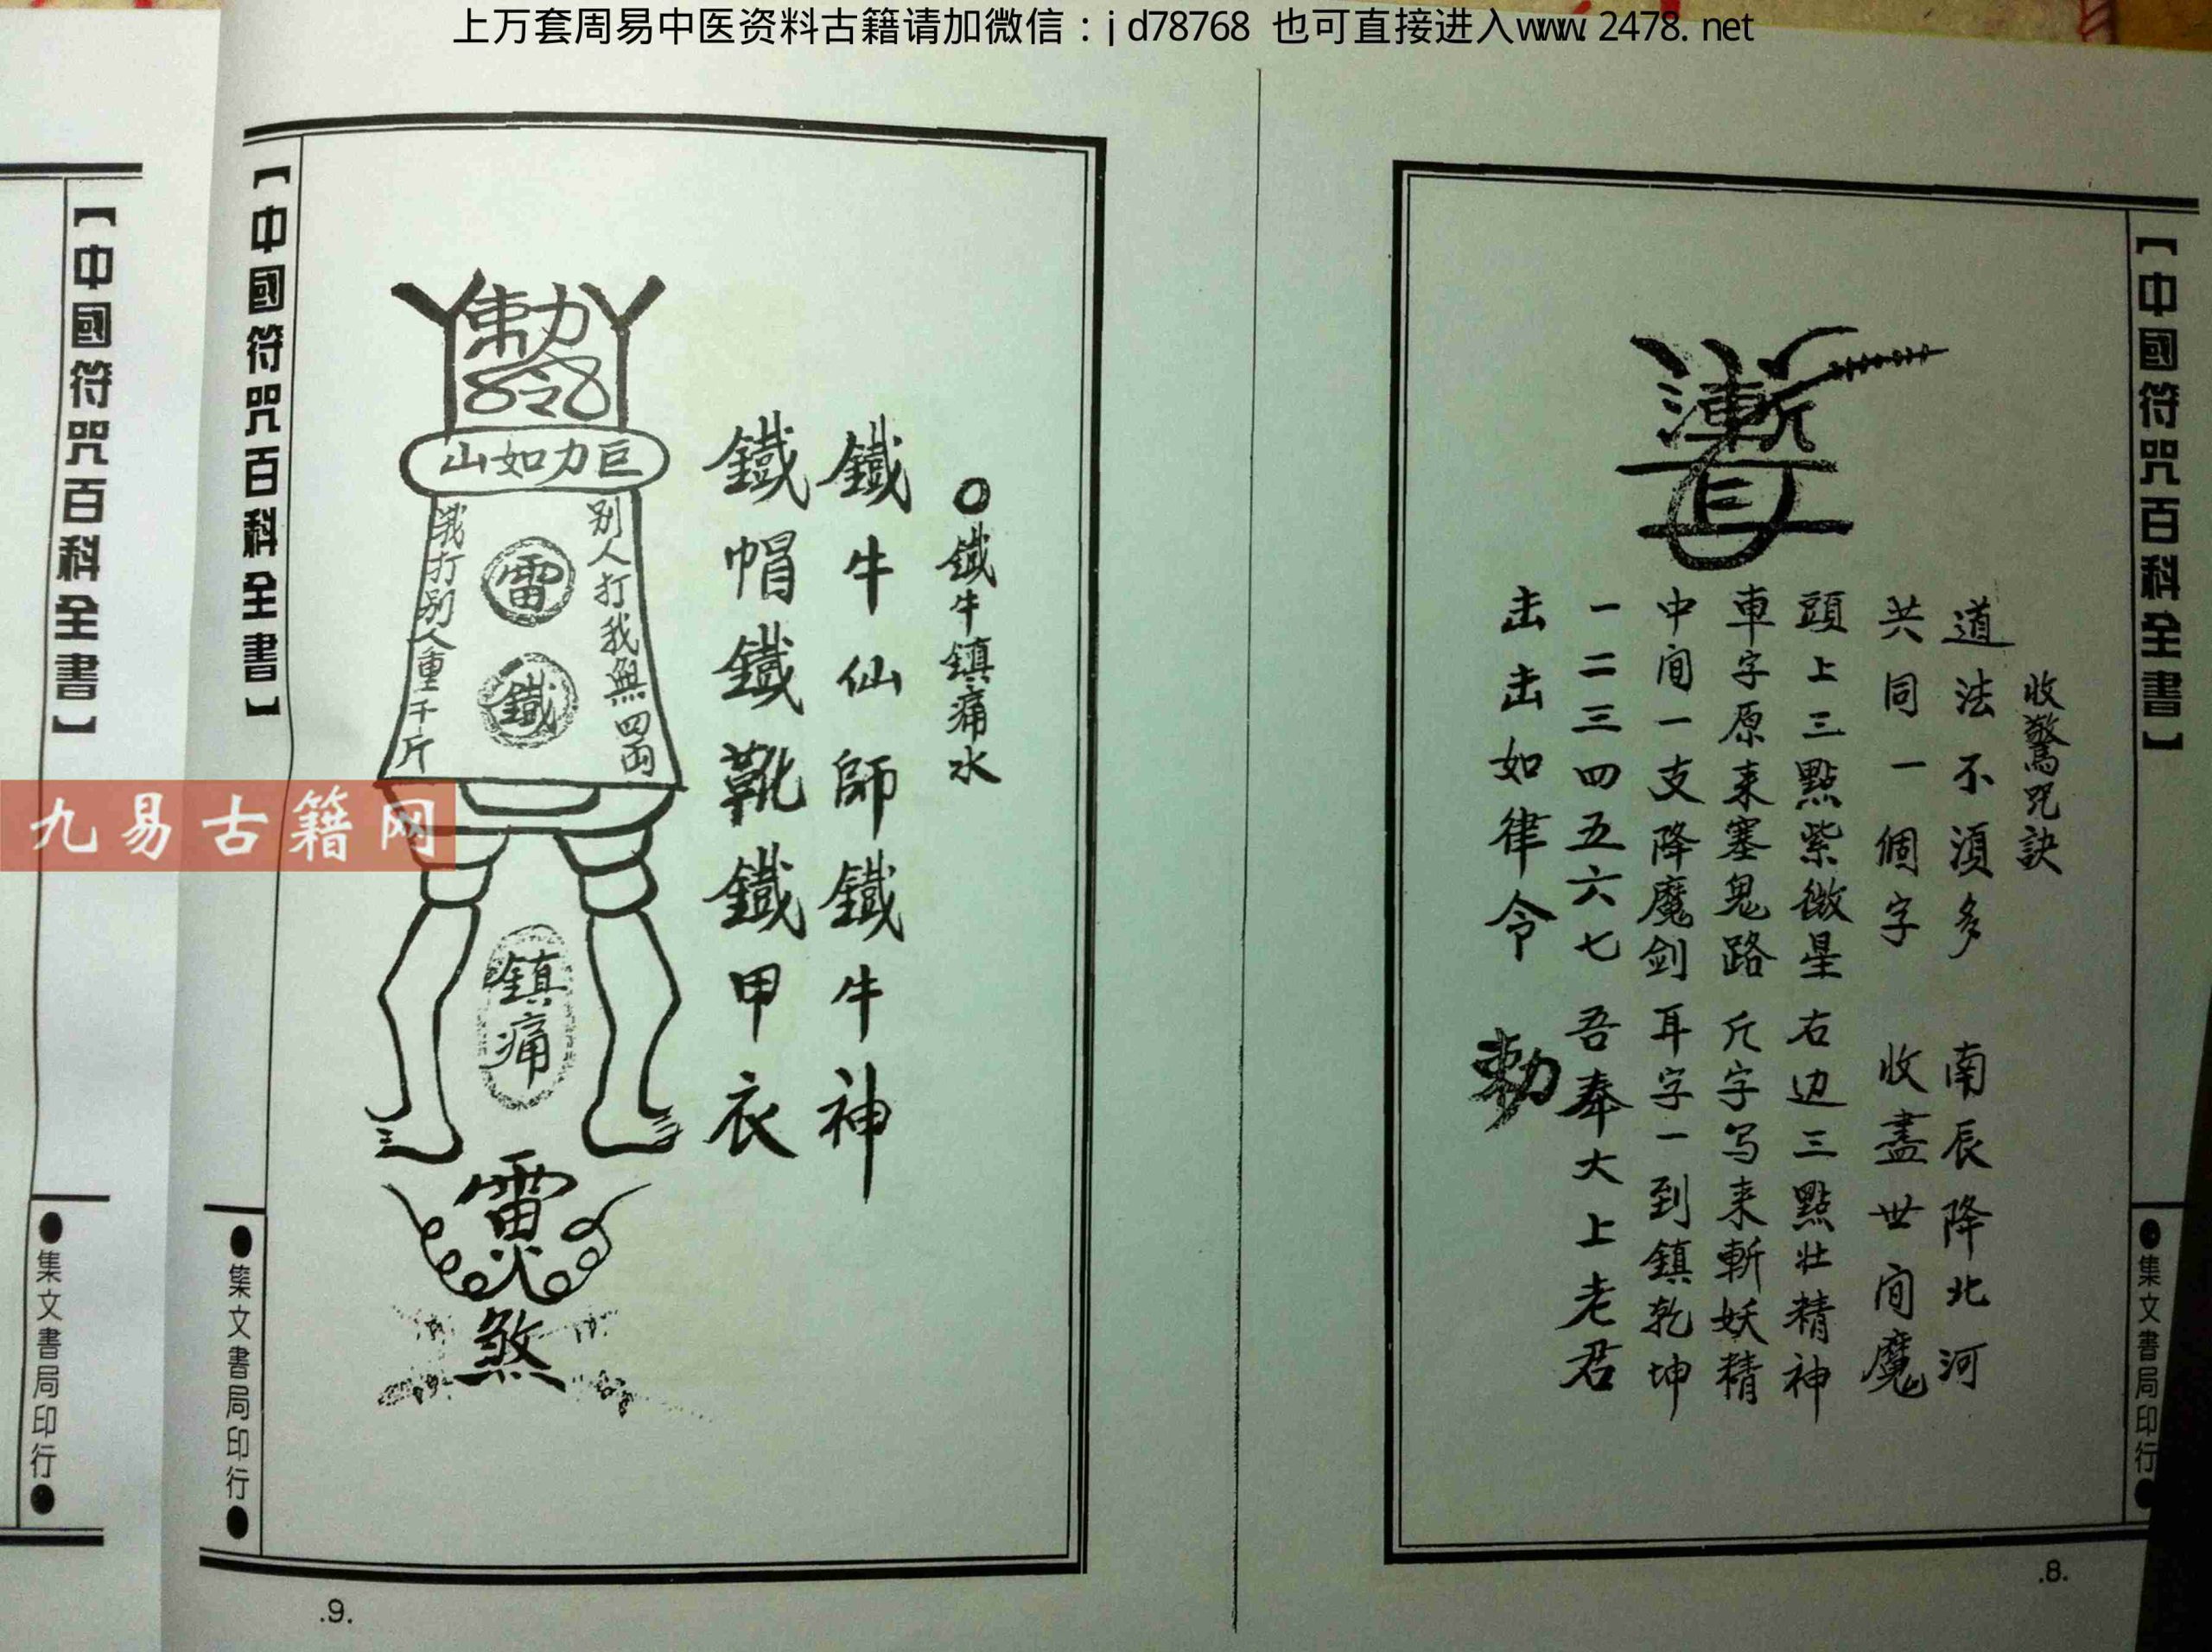 上万套周易中医资料古籍请加微信：jd78768 也可直接进入www.2478.net
【中國符咒百科全書】
收驚咒訣
道法不須多 南辰降北河
共同一個字 收盡世间魔
頭上三點紫微星 右边三點壮精神
車字原来塞鬼路 斤字写来斬妖精
中间一支降魔剑 耳字一到鎮乾坤
一二三四五六七 吾奉大上老君
击击如律令 勅
●集文書局印行●
.8.
○鐵牛鎮痛水
鐵牛仙師鐵牛神
鐵帽鐵靴鐵甲衣
勅
令
山如力巨
别人打我無四両
雷
鐵
我打别人重千斤
鎮痛
雷
火
煞
【中國符咒百科全書】
●集文書局印行●
.9.
【中國符咒百科全書】
●集文書局印行●
九易古籍网